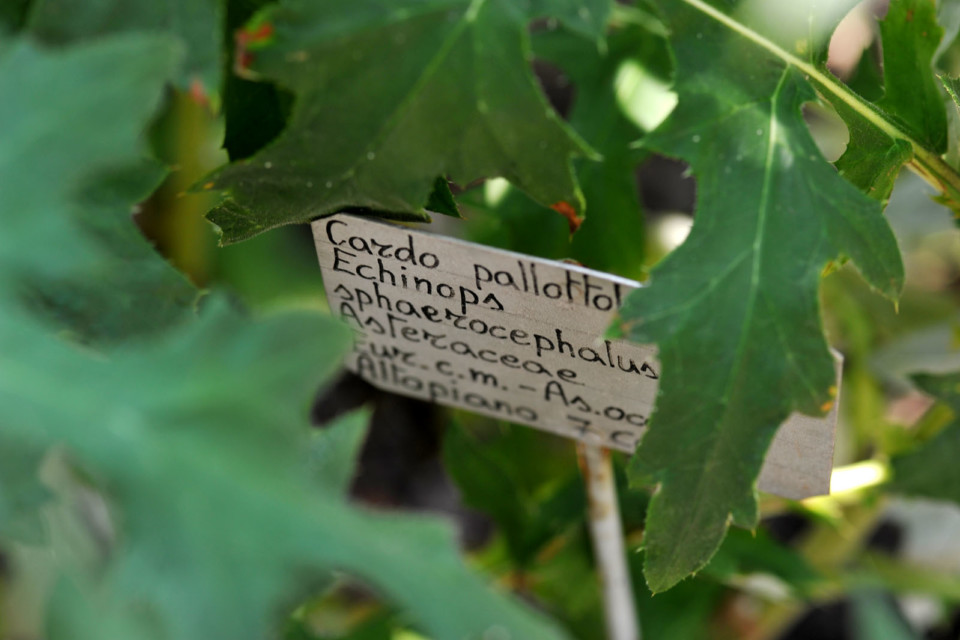 Cardo pallottol
Echinops
sphaerocephalus
Asteraceae
Eur.c.m.-As.oc
Altopiano 7 C